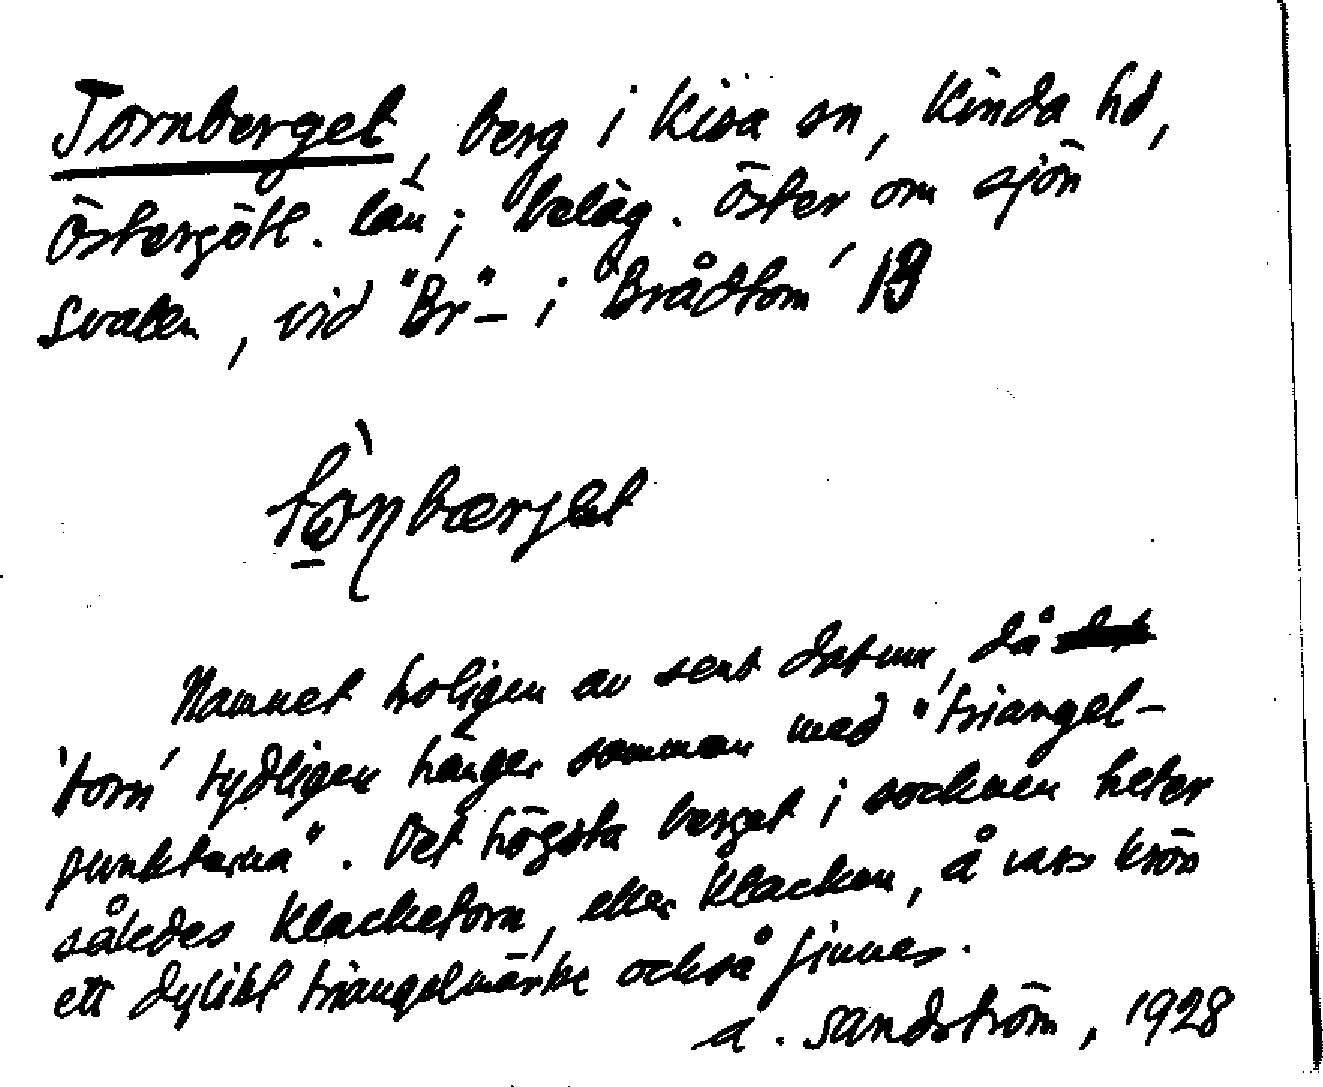 Tornberget, berg i Kisa sn, Kinda hd,
Östergötl. län; beläg. öster om sjön
Svalen, vid "Br"- i 'Brådtom' 13
Namnet troligen av sent datum, då
'torn' tydligen hänger samman med "triangel-
punkterna". Det högsta berget i socknen heter
således Klacketorn, eller Klacken, å vars krön
ett dylikt triangelmärke också finnes.
A. Sandström, 1928